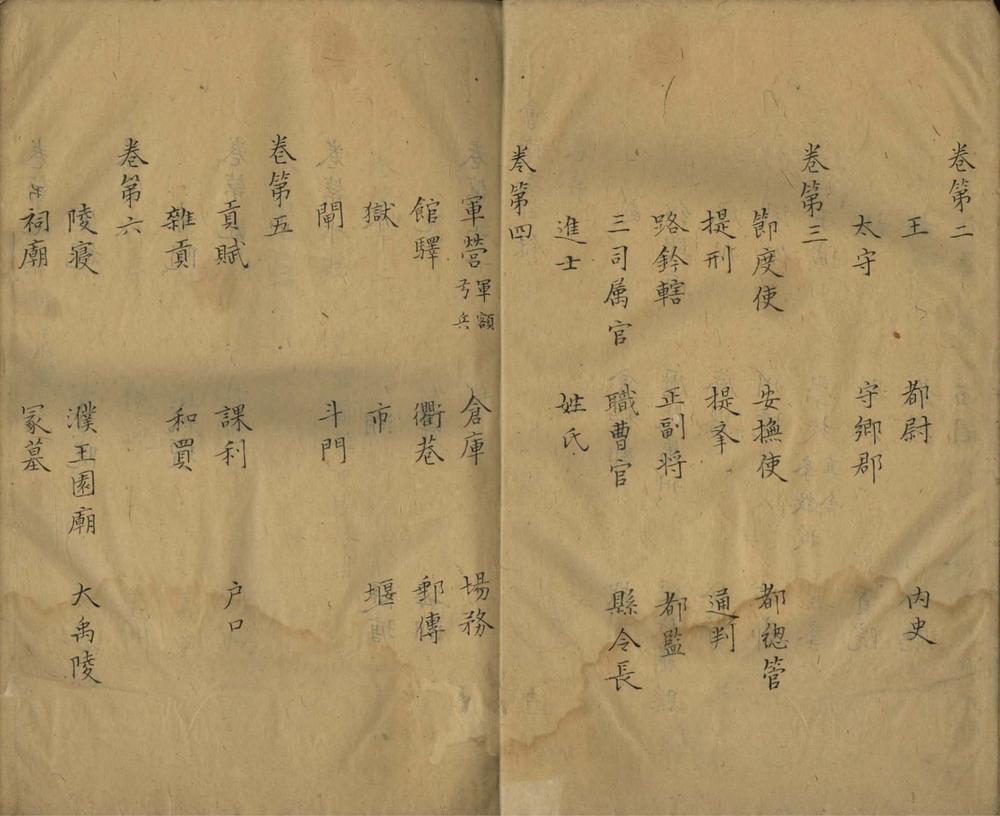 卷第二
王　都尉　内史
太守　守鄉郡
卷第三
節度使　安撫使　都總管
提刑　提舉　通判
路鈐轄　正副将　都監
三司属官　職曹官　縣令長
進士　姓氏
卷第四
軍營軍額弓兵　倉庫　場務
館驛　衢巷　郵傳
獄　市　堰
閘　斗門
卷第五
貢賦　課利　户口
雜貢　和買
卷第六
陵寝　濮王園廟　大禹陵
祠廟　冢墓